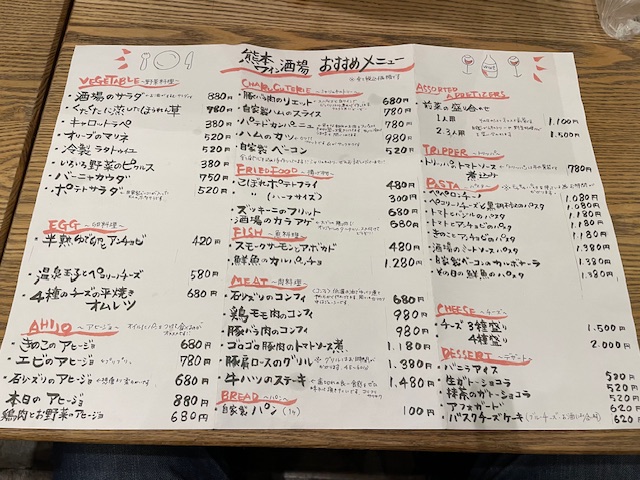 熊本ワイン酒場 おすすめメニュー
VEGETABLE ~野菜料理~
・酒場のサラダ 880円
・くたくたに蒸したほうれん草 780円
・キャロットラペ 380円
・オリーブのマリネ 520円
・冷製ラタトゥイユ 520円
・いろいろ野菜のピクルス 380円
・バーニャカウダ 750円
・ポテトサラダ 520円
EGG ~卵料理~
・半熟ゆで卵アンチョビ 420円
・温泉玉子とペコリーノチーズ 580円
・4種のチーズの平焼きオムレツ 680円
AHIJO ~アヒージョ~
・きのこのアヒージョ 680円
・エビのアヒージョ プリプリ 780円
・石づりのアヒージョ 680円
・本日のアヒージョ 880円
・鶏肉とお野菜のアヒージョ 680円
CHARCUTERIE
・豚バラ肉のリエット 680円
・自家製ハムのスライス 780円
・パテドカンパーニュ 780円
・ハムのカツ 980円
・自家製ベーコン 520円
FRIED FOOD ~揚げ物~
・こぼれポテトフライ 480円
・〃 (ハーフサイズ) 300円
・ズッキーニのフリット 680円
・酒場のカラアゲ 580円
FISH ~魚料理~
・スモークサーモンアボカド 480円
・鮮魚のカルパッチョ 1.280円
MEAT ~肉料理~
・石づりのコンフィ 680円
・鶏モモ肉のコンフィ 980円
・豚バラ肉のコンフィ 980円
・ゴロゴロ豚肉のトマトソース煮 1.180円
・豚肩ロースのグリル 1.380円
・牛ハツのステーキ 1.480円
BREAD ~パン~
・自家製パン (1ケ) 100円
ASSORTED APPETIZERS
前菜の盛り合わせ
1人前 1.100円
2~3人前 1.500円
TRIPPER ~トリッパ~
・トリッパのトマトソース煮込み 780円
PASTA ~パスタ~
・ペペロンチーノ 1.080円
・ペコリーノチーズと黒胡椒のパスタ 1.080円
・トマトとバジルのパスタ 1.180円
・トマトとアンチョビのパスタ 1.180円
・きのことアンチョビのパスタ 1.180円
・酒場のミートソースパスタ 1.380円
・自家製ベーコンのカルボナーラ 1.380円
・その日の鮮魚のパスタ 1.380円
CHEESE ~チーズ~
・チーズ 3種盛り 1.500円
4種盛り 2.000円
DESSERT ~デザート~
・バニラアイス
・生ガトーショコラ 520円
・抹茶のガトーショコラ 520円
・アフォガード 620円
・バスクチーズケーキ 620円